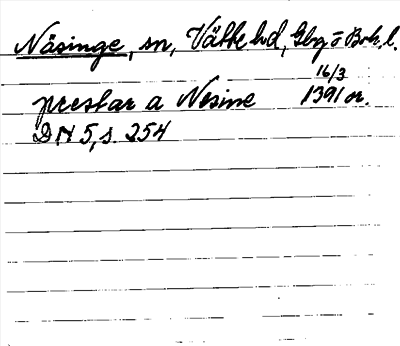 Näsinge, sn, Vätte hd, Gbg o Boh. l.
16/3
prestar a Nesine 1391 or.
DN 5, s. 254